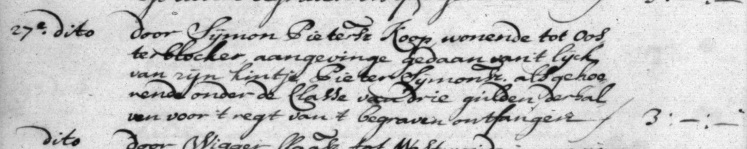 27e. dito door Sijmon Pieterse Koop, wonende tot Oos
terblocker, aangevinge gedaan van 't lijck
van zijn kintje Pieter Sijmonsz. als gehoe
rende onder de Classe van drie gulden derhal
ven voor 't regt van 't begraven ontfangen 3:—:—
dito door Wigger Claasz tot